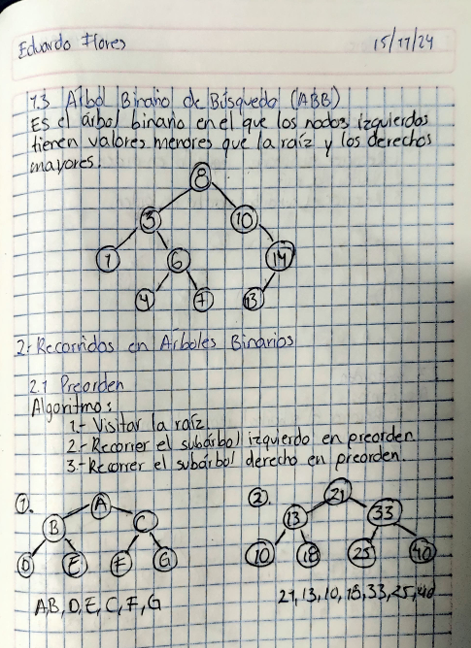 Eduardo Flores 15/11/24
1.3 Árbol Binario de Búsqueda (ABB)
Es el árbol binario en el que los nodos izquierdos
tienen valores menores que la raíz y los derechos
mayores.
8
3 10
1 6 14
4 7 13
2.- Recorridos en Árboles Binarios
2.1 Preorden
Algoritmo:
1.- Visitar la raíz.
2.- Recorrer el subárbol izquierdo en preorden.
3.- Recorrer el subárbol derecho en preorden.
①. A ②. 21
B C 13 33
D E F G 10 18 25 40
A,B,D,E,C,F,G 21,13,10,18,33,25,40